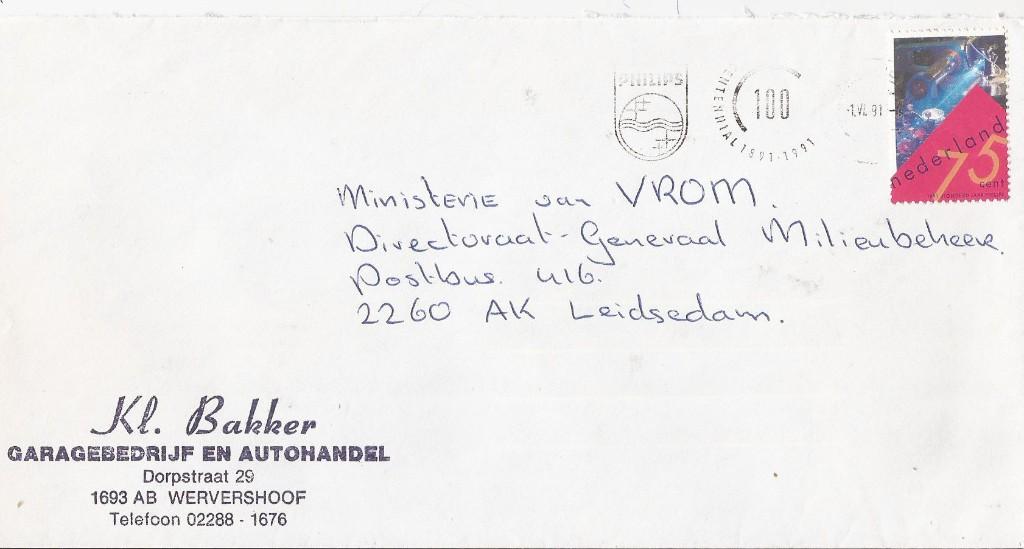 PHILIPS
CENTENNIAL 1891-1991
100
-1.VI.91-
nederland
75
cent
Ministerie van VROM.
Directoraat-Generaal Milieubeheer
Postbus. 416.
2260 AK Leidsedam.
Kl. Bakker
GARAGEBEDRIJF EN AUTOHANDEL
Dorpstraat 29
1693 AB WERVERSHOOF
Telefoon 02288 - 1676